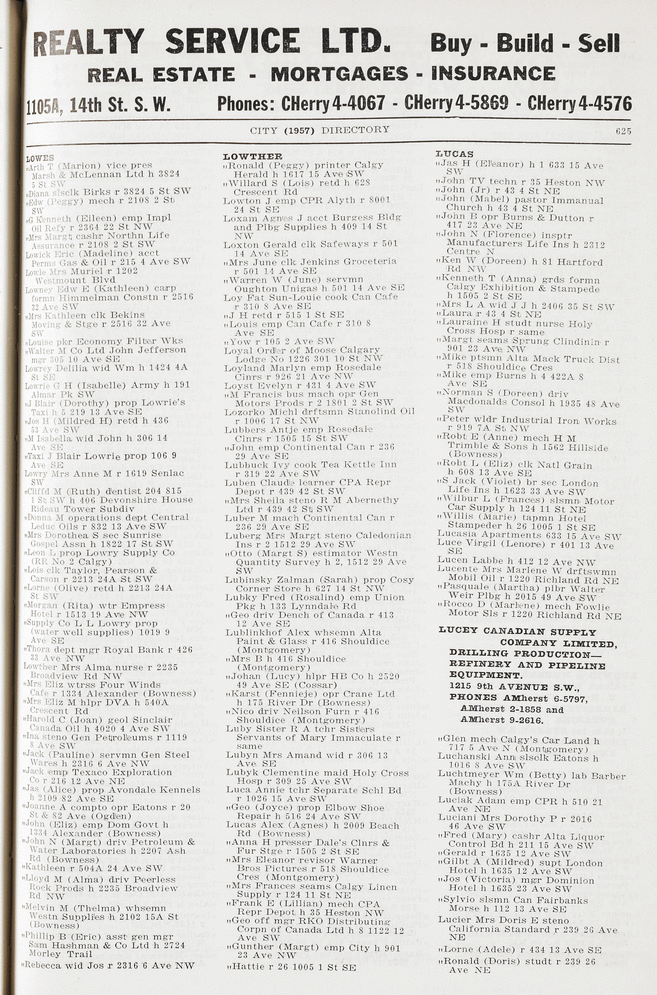 REALTY SERVICE LTD. Buy - Build - Sell
REAL ESTATE - MORTGAGES - INSURANCE
1105A, 14th St. S. W. Phones: CHerry 4-4067 - CHerry 4-5869 - CHerry 4-4576
CITY (1957) DIRECTORY 625
LOWES
"Arth T (Marion) vice pres
Marsh & McLennan Ltd h 3824
5 St SW
"Diana slsclk Birks r 3824 5 St SW
"Edw (Peggy) mech r 2108 2 St
SW
"G Kenneth (Eileen) emp Impl
Oil Refy r 2364 22 St NW
"Mrs Margt cashr Northn Life
Assurance r 2108 2 St SW
Lowick Eric (Madeline) acct
Perma Gas & Oil r 215 4 Ave SW
Lowie Mrs Muriel r 1202
Westmount Blvd
Lowney Edw E (Kathleen) carp
formn Himmelman Constn r 2516
32 Ave SW
"Mrs Kathleen clk Bekins
Moving & Stge r 2516 32 Ave
SW
"Louise pkr Economy Filter Wks
"Walter M Co Ltd John Jefferson
mgr 305 10 Ave SE
Lowrey Delilia wid Wm h 1424 4A
St SE
Lowrie C H (Isabelle) Army h 191
Almar Pk SW
"J Blair (Dorothy) prop Lowrie's
Taxi h 5 219 13 Ave SE
"Jos H (Mildred) retd h 436
53 Ave SW
"M Isabella wid John h 306 14
Ave SE
"Taxi J Blair Lowrie prop 106 9
Ave SE
Lowry Mrs Anne M r 1619 Senlac
SW
"Cliffd M (Ruth) dentist 204 815
1 St SW h 406 Devonshire House
Rideau Tower Subdiv
"Donna M operations dept Central
Leduc Oils r 832 13 Ave SW
"Mrs Dorothea S sec Sunrise
Gospel Assn h 1822 17 St SW
"Leon L prop Lowry Supply Co
(RR No 2 Calgy)
"Lois clk Taylor, Pearson &
Carson r 2213 24A St SW
"Lorne (Olive) retd h 2213 24A
St SW
"Morgan (Rita) wtr Empress
Hotel r 1513 19 Ave NW
"Supply Co L L Lowry prop
(water well supplies) 1019 9
Ave SE
"Thora dept mgr Royal Bank r 426
33 Ave NW
Lowther Mrs Alma nurse r 2235
Broadview Rd NW
"Mrs Eliz wtrss Four Winds
Cafe r 1334 Alexander (Bowness)
"Mrs Eliz M hlpr DVA h 540A
Crescent Rd
"Harold C (Joan) geol Sinclair
Canada Oil h 4020 4 Ave SW
"Ina steno Gen Petroleums r 1119
8 Ave SW
"Jack (Pauline) servmn Gen Steel
Wares h 2316 6 Ave NW
"Jack emp Texaco Exploration
Co r 216 12 Ave NE
"Jas (Alice) prop Avondale Kennels
h 2109 82 Ave SE
"Joanne A compto opr Eatons r 20
St & 82 Ave (Ogden)
"John (Eliz) emp Dom Govt h
1334 Alexander (Bowness)
"John N (Margt) driv Petroleum &
Water Laboratories h 2207 Ash
Rd (Bowness)
"Kathleen r 504A 24 Ave SW
"Lloyd M (Alma) driv Peerless
Rock Prods h 2235 Broadview
Rd NW
"Melvin M (Thelma) whsemn
Westn Supplies h 2102 15A St
(Bowness)
"Phillip B (Eric) asst gen mgr
Sam Hashman & Co Ltd h 2724
Morley Trail
"Rebecca wid Jos r 2316 6 Ave NW
LOWTHER
"Ronald (Peggy) printer Calgy
Herald h 1617 15 Ave SW
"Willard S (Lois) retd h 628
Crescent Rd
Lowton J emp CPR Alyth r 8001
24 St SE
Loxam Agnes J acct Burgess Bldg
and Plbg Supplies h 409 14 St
NW
Loxton Gerald clk Safeways r 501
14 Ave SE
"Mrs June clk Jenkins Groceteria
r 501 14 Ave SE
"Warren W (June) servmn
Oughton Unigas h 501 14 Ave SE
Loy Fat Sun-Louie cook Can Cafe
r 310 8 Ave SE
"J H retd r 515 1 St SE
"Louis emp Can Cafe r 310 8
Ave SE
"Yow r 105 2 Ave SW
Loyal Order of Moose Calgary
Lodge No 1226 301 10 St NW
Loyland Marlyn emp Rosedale
Clnrs r 926 21 Ave NW
Loyst Evelyn r 431 4 Ave SW
"M Francis bus mach opr Gen
Motors Prods r 2 1801 2 St SW
Lozorko Michl drftsmn Stanolind Oil
r 1006 17 St NW
Lubbers Antje emp Rosedale
Clnrs r 1505 15 St SW
"John emp Continental Can r 236
29 Ave SE
Lubbuck Ivy cook Tea Kettle Inn
r 319 22 Ave SW
Luben Claude learner CPA Repr
Depot r 439 42 St SW
"Mrs Sheila steno R M Abernethy
Ltd r 439 42 St SW
Luber M mach Continental Can r
236 29 Ave SE
Luberg Mrs Margt steno Caledonian
Ins r 2 1512 29 Ave SW
"Otto (Margt S) estimator Westn
Quantity Survey h 2, 1512 29 Ave
SW
Lubinsky Zalman (Sarah) prop Cosy
Corner Store h 627 14 St NW
Lubky Fred (Rosalind) emp Union
Pkg h 133 Lynndale Rd
"Geo driv Dench of Canada r 413
12 Ave SE
Lublinkhof Alex whsemn Alta
Paint & Glass r 416 Shouldice
(Montgomery)
"Mrs B h 416 Shouldice
(Montgomery)
"Johan (Lucy) hlpr HB Co h 2520
49 Ave SE (Cossar)
"Karst (Fennieje) opr Crane Ltd
h 175 River Dr (Bowness)
"Nico driv Neilson Furn r 416
Shouldice (Montgomery)
Luby Sister R A tchr Sisters
Servants of Mary Immaculate r
same
Lubyn Mrs Amand wid r 306 13
Ave SE
Lubyk Clementine maid Holy Cross
Hosp r 309 25 Ave SW
Luca Annie tchr Separate Schl Bd
r 1026 15 Ave SW
"Geo (Joyce) prop Elbow Shoe
Repair h 516 24 Ave SW
Lucas Alex (Agnes) h 2009 Beach
Rd (Bowness)
"Anna H presser Dale's Clnrs &
Fur Stge r 1505 2 St SE
"Mrs Eleanor revisor Warner
Bros Pictures r 518 Shouldice
Cres (Montgomery)
"Mrs Frances seams Calgy Linen
Supply r 124 11 St NE
"Frank E (Lillian) mech CPA
Repr Depot h 35 Heston NW
"Geo off mgr RKO Distributing
Corpn of Canada Ltd h 8 1122 12
Ave SW
"Gunther (Margt) emp City h 901
23 Ave NW
"Hattie r 26 1005 1 St SE
LUCAS
"Jas H (Eleanor) h 1 633 15 Ave
SW
"John TV techn r 35 Heston NW
"John (Jr) r 43 4 St NE
"John (Mabel) pastor Immanual
Church h 43 4 St NE
"John B opr Burns & Dutton r
417 23 Ave NE
"John N (Florence) insptr
Manufacturers Life Ins h 2312
Centre N
"Ken W (Doreen) h 81 Hartford
Rd NW
"Kenneth T (Anna) grds formn
Calgy Exhibition & Stampede
h 1505 2 St SE
"Mrs L A wid J J h 2406 35 St SW
"Laura r 43 4 St NE
"Lauraine H studt nurse Holy
Cross Hosp r same
"Margt seams Sprung Clindinin r
901 23 Ave NW
"Mike ptsmn Alta Mack Truck Dist
r 518 Shouldice Cres
"Mike emp Burns h 4 422A 8
Ave SE
"Norman S (Doreen) driv
Macdonalds Consol h 1935 48 Ave
SW
"Peter wldr Industrial Iron Works
r 919 7A St NW
"Robt E (Anne) mech H M
Trimble & Sons h 1562 Hillside
(Bowness)
"Robt L (Eliz) clk Natl Grain
h 608 13 Ave SE
"S Jack (Violet) br sec London
Life Ins h 1623 33 Ave SW
"Wilbur L (Frances) slsmn Motor
Car Supply h 124 11 St NE
"Willis (Marie) tapmn Hotel
Stampeder h 26 1005 1 St SE
Lucasia Apartments 633 15 Ave SW
Luce Virgil (Lenore) r 401 13 Ave
SE
Lucen Labbe h 412 12 Ave NW
Lucente Mrs Marlene W drftswmn
Mobil Oil r 1220 Richland Rd NE
"Pasquale (Martha) plbr Walter
Weir Plbg h 2015 49 Ave SW
"Rocco D (Marlene) mech Fowlie
Motor Sls r 1220 Richland Rd NE
LUCEY CANADIAN SUPPLY
COMPANY LIMITED,
DRILLING PRODUCTION—
REFINERY AND PIPELINE
EQUIPMENT.
1215 9th AVENUE S.W.,
PHONES AMherst 6-5797,
AMherst 2-1858 and
AMherst 9-2616.
"Glen mech Calgy's Car Land h
717 5 Ave N (Montgomery)
Luchanski Ann slsclk Eatons h
1016 8 Ave SW
Luchtmeyer Wm (Betty) lab Barber
Machy h 175A River Dr
(Bowness)
Luciak Adam emp CPR h 510 21
Ave NE
Luciani Mrs Dorothy P r 2016
46 Ave SW
"Fred (Mary) cashr Alta Liquor
Control Bd h 211 15 Ave SW
"Gerald r 1635 12 Ave SW
"Gilbt A (Mildred) supt London
Hotel h 1635 12 Ave SW
"Jos (Victoria) mgr Dominion
Hotel h 1635 23 Ave SW
"Sylvio slsmn Can Fairbanks
Morse h 112 13 Ave SE
Lucier Mrs Doris E steno
California Standard r 239 26 Ave
NE
"Lorne (Adele) r 434 13 Ave SE
"Ronald (Doris) studt r 239 26
Ave NE